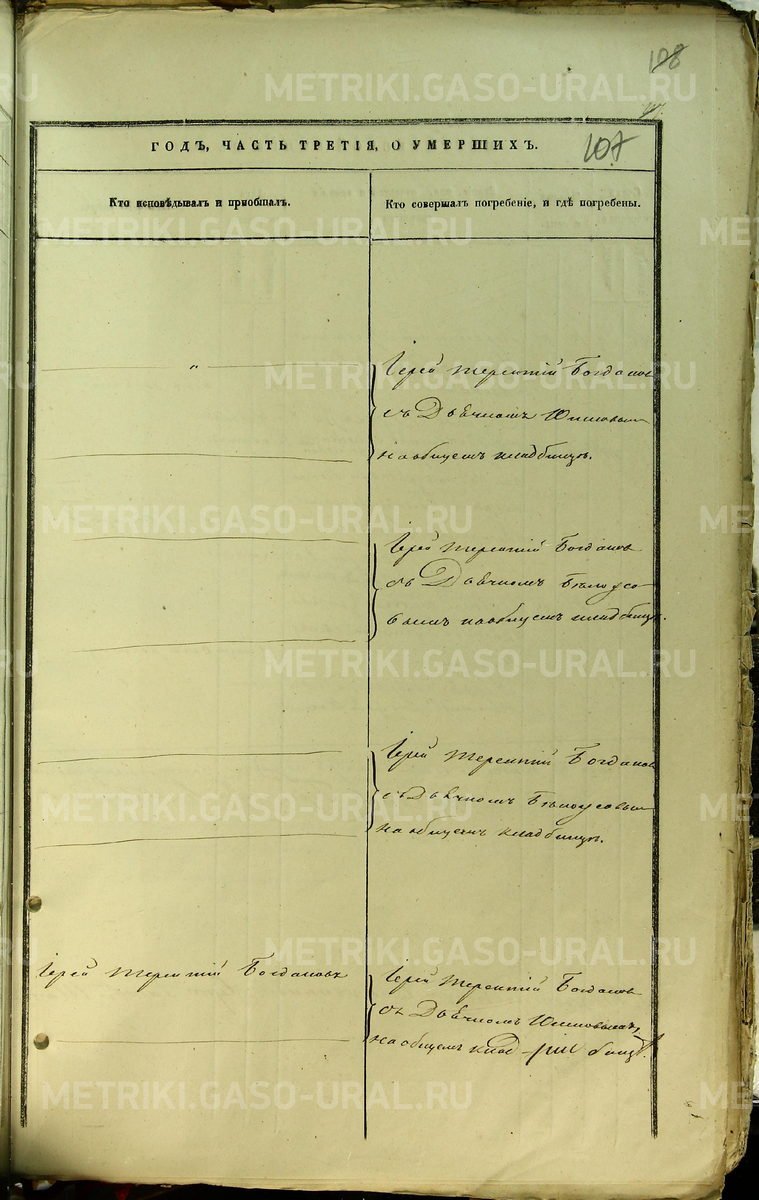 108
107
ГОДЪ, ЧАСТЬ ТРЕТІЯ, О УМЕРШИХЪ.
Кто исповѣдывалъ и пріобщалъ.
Кто совершалъ погребеніе, и гдѣ погребены.
Іерей Терентій Богданов
съ Дьячкомъ
на общемъ кладбищѣ.
Іерей Терентій Богданов
съ Дьячкомъ Бѣлоусо
вымъ на общемъ кладбищѣ.
Іерей Терентій Богданов
съ Дьячкомъ Бѣлоусовым
на общемъ кладбищѣ.
Іерей Терентій Богдановъ
Іерей Терентій Богданов
съ Дьячкомъ
на общемъ клад бищѣ.
METRIKI.GASO-URAL.RU